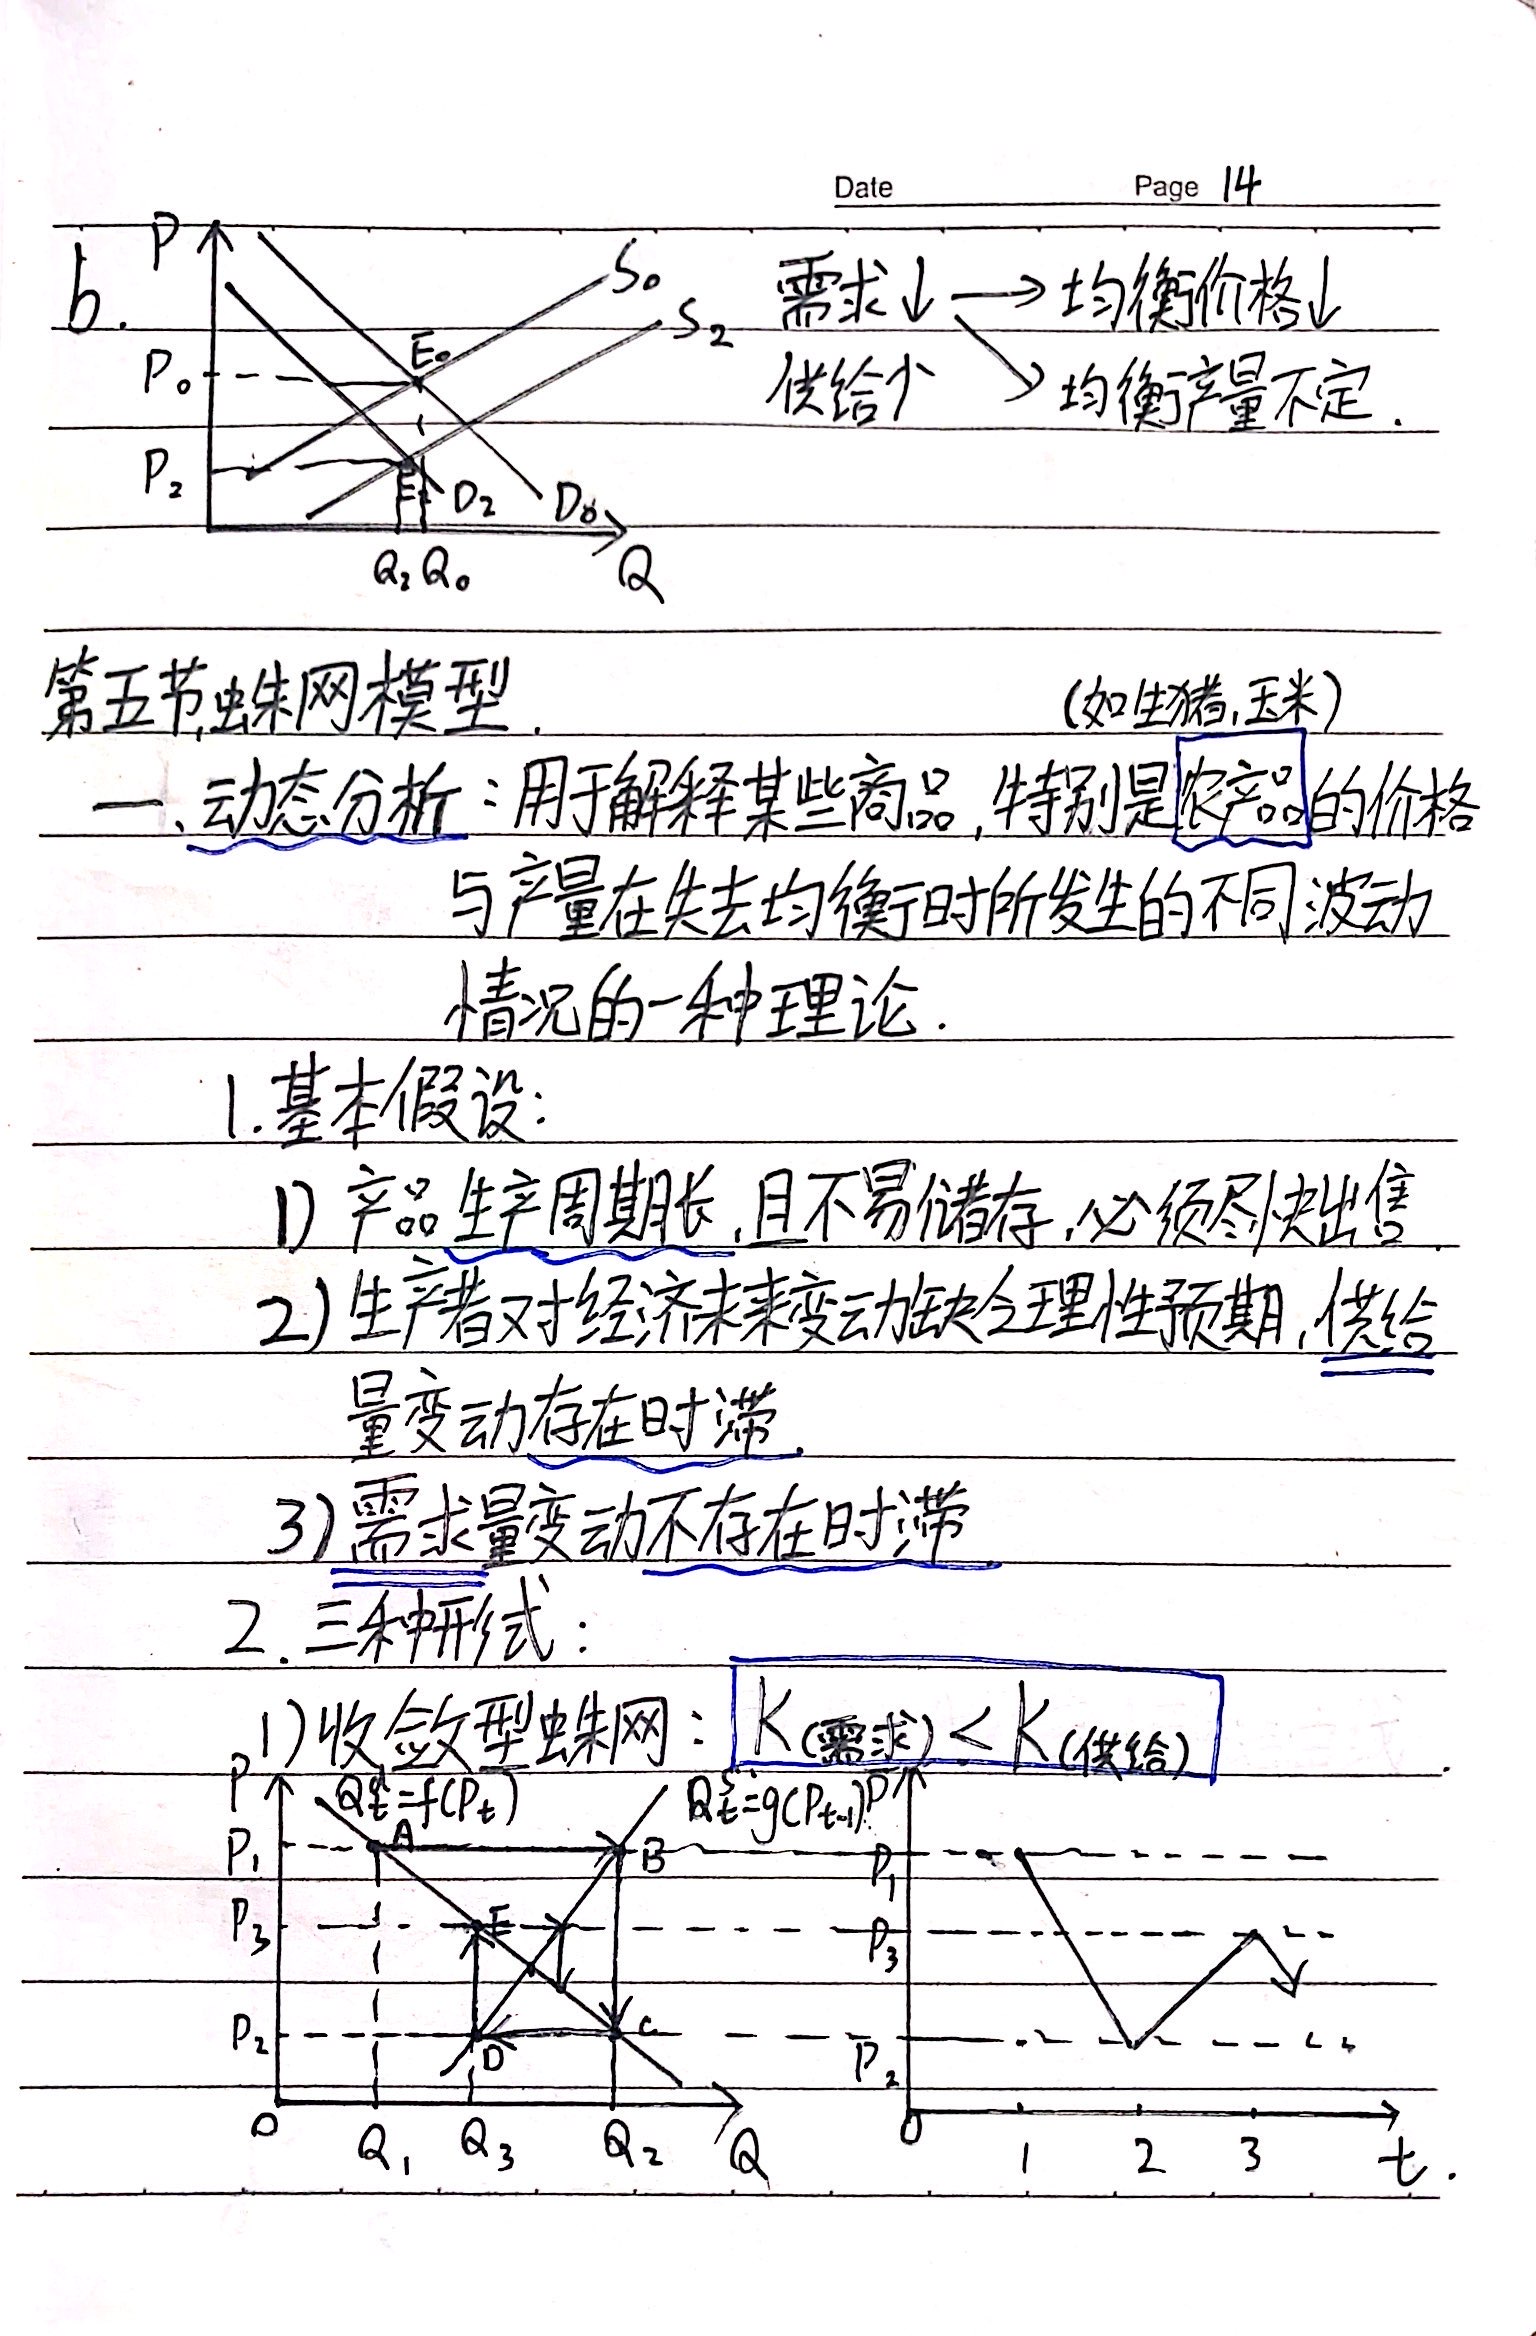 Date Page 14
b.
P
S₀
S₂
P₀
E₀
P₂
E₂
D₂
D₀
Q₂ Q₀
Q
需求↓ → 均衡价格↓
供给↑ ↘ 均衡产量不定.
第五节、蛛网模型.
(如生猪,玉米)
一、动态分析:用于解释某些商品,特别是农产品的价格
与产量在失去均衡时所发生的不同波动
情况的一种理论.
1.基本假设:
1) 产品生产周期长,且不易储存,必须尽快出售
2)生产者对经济未来变动缺乏理性预期,供给
量变动存在时滞
3)需求量变动不存在时滞
2.三种形式:
1)收敛型蛛网: K(需求)<K(供给)
P
Qₜᵈ=f(Pₜ)
Qₜˢ=g(Pₜ₋₁)
P₁
A
B
P₃
E
P₂
D
C
O
Q₁
Q₃
Q₂
Q
P
P₁
P₃
P₂
O
1
2
3
t.